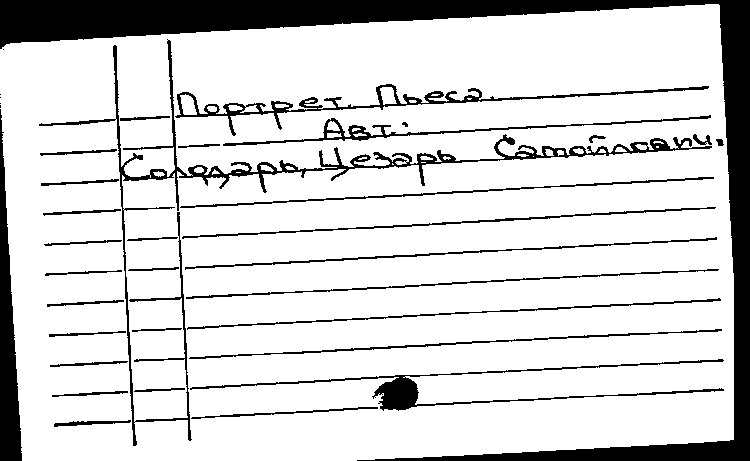 Портрет. Пьеса.
Авт.:
Солодарь, Цезарь Самойлович.